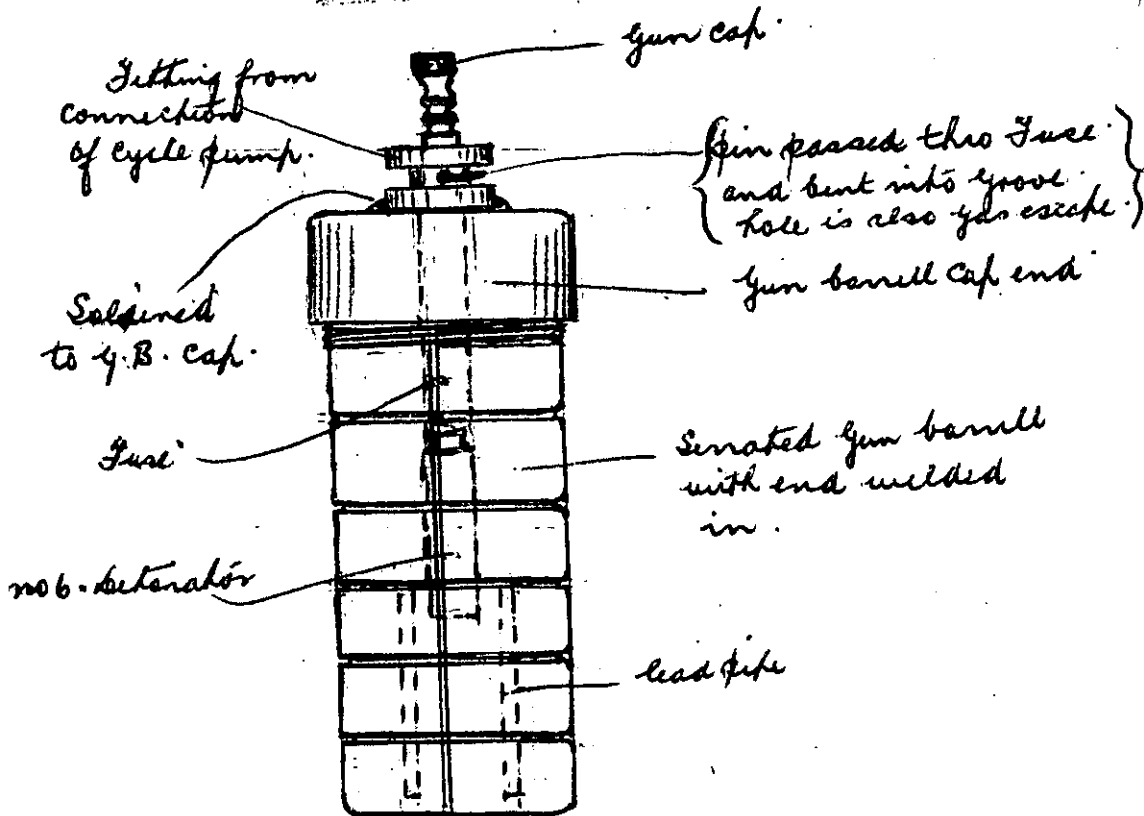 Gun cap.
Fitting from
connection
of cycle pump.
pin passed thro Fuse.
and bent into groove.
hole is also gas escape.
Gun barrell cap end
Soldered
to G.B. cap.
Fuse
Serrated Gun barrell
with end welded
in.
no 6. Detonator
lead pipe